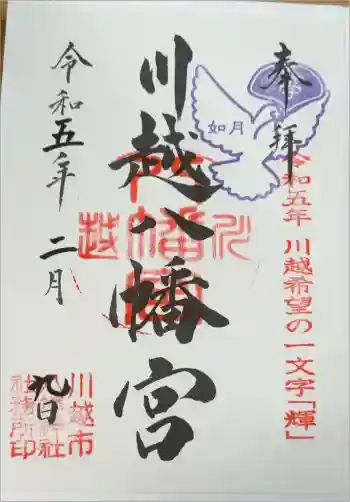 奉拝
如月
令和五年 川越希望の一文字「輝」
川越八幡宮
令和五年 二月
九日
川越市
社務所印